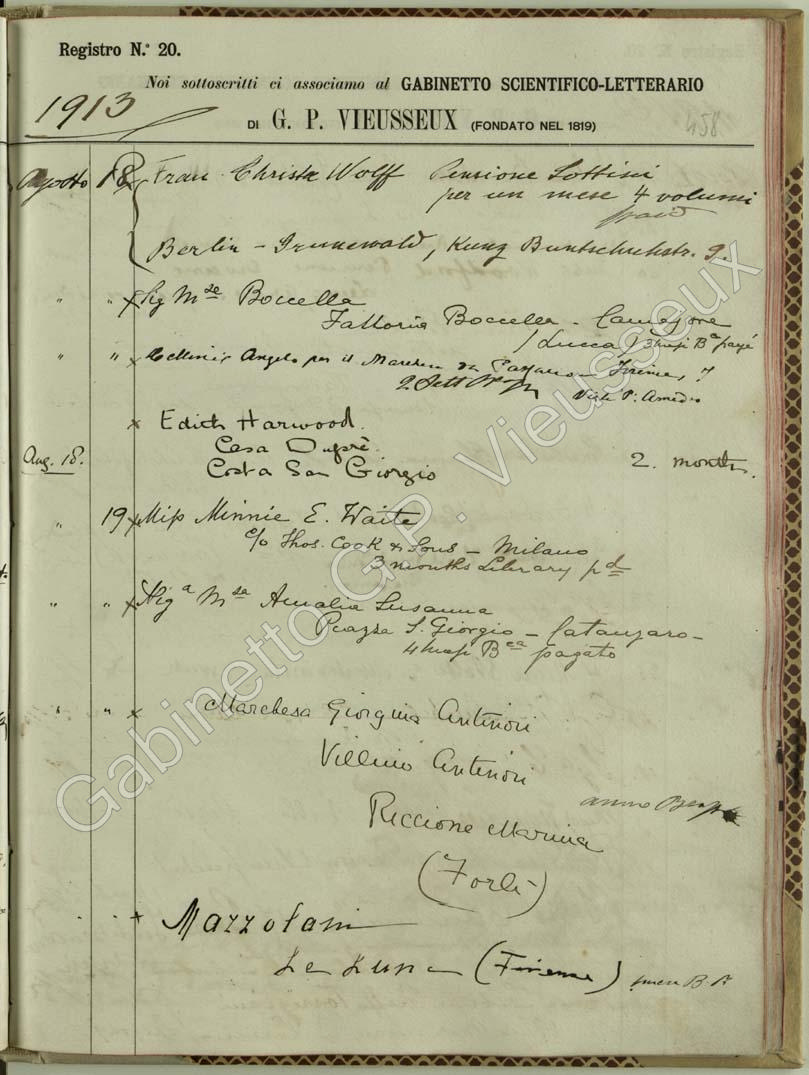 Registro N.º 20.
Noi sottoscritti ci associamo al GABINETTO SCIENTIFICO-LETTERARIO
1913
DI G. P. VIEUSSEUX (FONDATO NEL 1819)
458
Agosto 18 Frau Christa Wolff Pensione Lottini
per un mese 4 volumi
paid
Berlin - Grunewald, Kunz Buntschuhstr. 9.
" " x Sig Mse Boccella
Fattoria Boccella - Camajore
(Lucca) 3 mesi Ba
" " x Angelo per il Marchese Firenze, 7
2 Sett
Viale P. Amedeo
x Edith Harwood.
Casa Dupré.
Aug. 18.
Costa San Giorgio 2. months.
" 19 x Miss Minnie E. Waite
c/o Thos. Cook & Sons - Milano
3 months Library pd
" " x Siga Msa Amalia Susanna
Piazza S. Giorgio - Catanzaro -
4 mesi Bca pagato
" " x Marchesa Giorgina Antinori
Villino Antinori
anno
Riccione Marina
(Forlì)
x Mazzolani
(Firenze)
Gabinetto G.P. Vieusseux